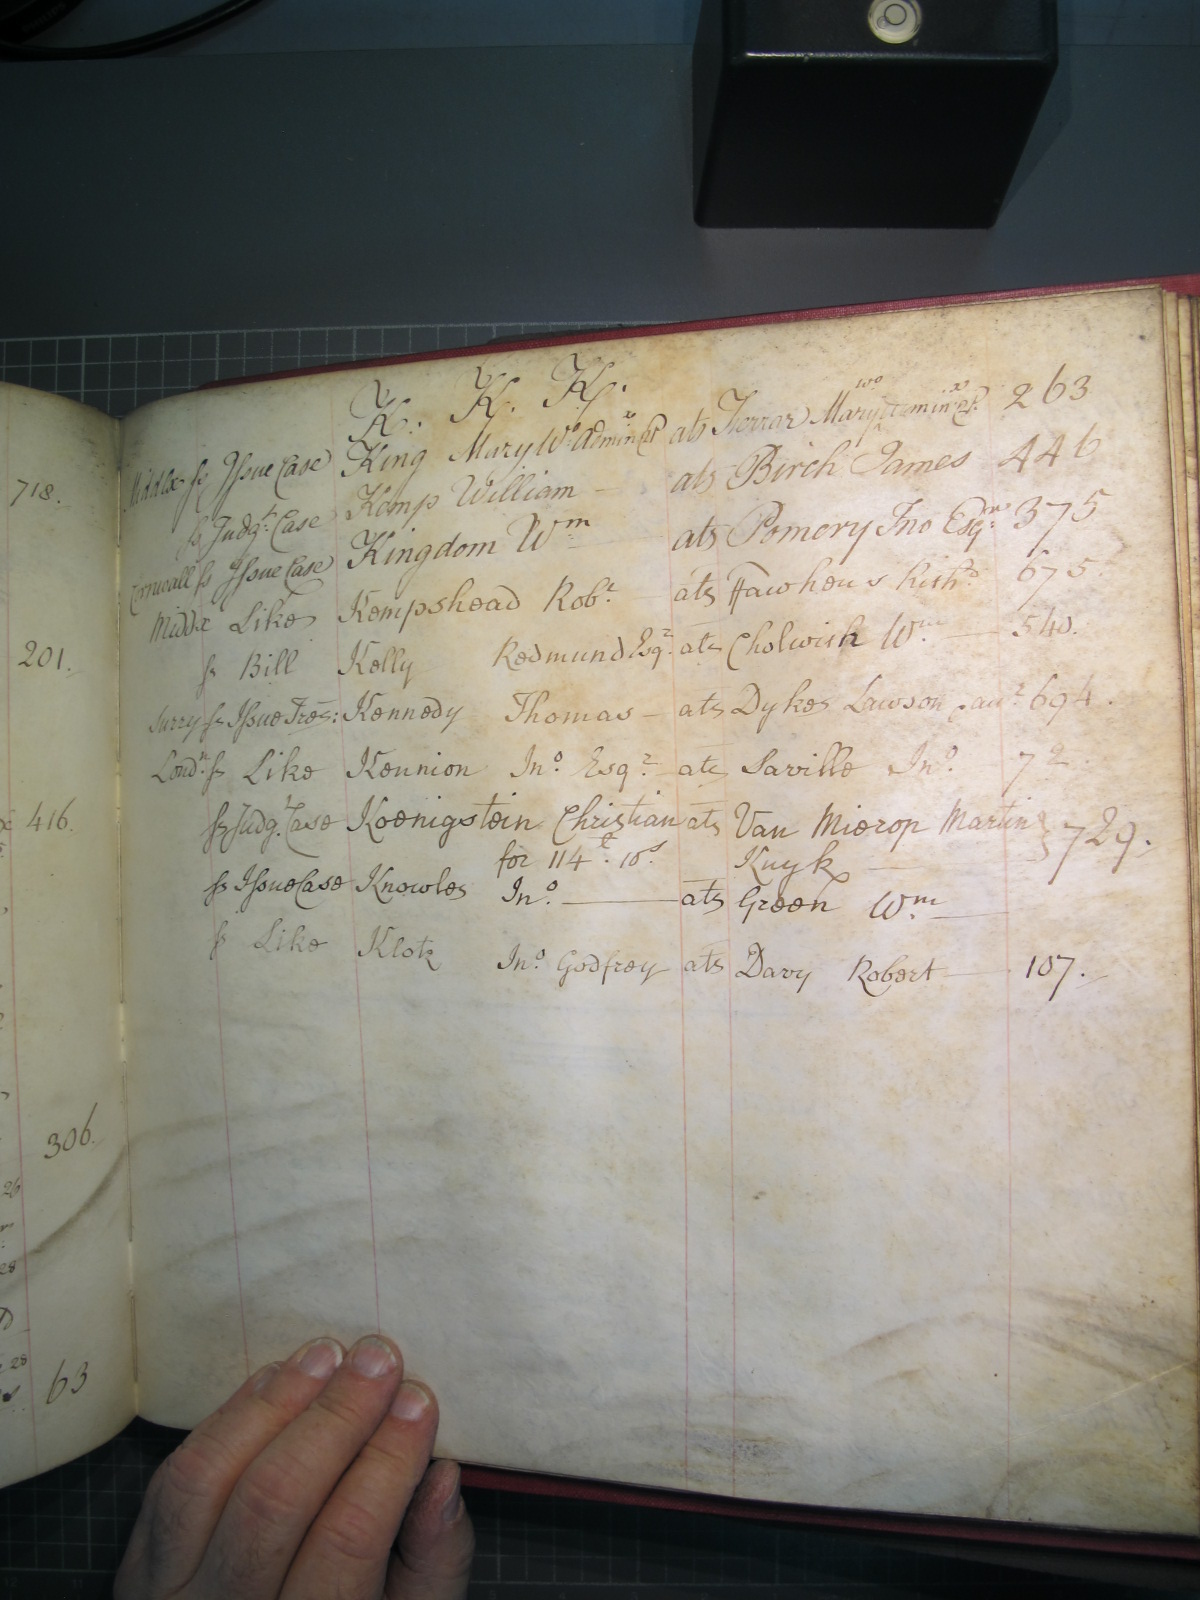 K. K. K.
Middx ss Issue Case King Mary Wo. Adminx &c ats Terrar Mary wo Adminx &c. 263
ss Judgt. Case Kemp William ats Birch James 446
Cornwall ss Issue Case Kingdom Wm ats Pomery Jno Esqr. 375
Middx Like Kempshead Robt. ats Hawkeus Richd. 675.
ss Bill Kelly Redmund Esqr. ats Cholwish Wm 540.
Surry ss Issue Tres: Kennedy Thomas ats Dykes Lawson 694.
Londn. ss Like Keunion Jno. Esqr. ats Saville Jno. 72
ss Judgt. Case Koenigstein Christian ats Van Mierop Martin 729.
for 114£. 10s. Kuyk
ss Issue Case Knowles Jno. ats Green Wm
ss Like Klotz Jno. Godfrey ats Davy Robert 107.
718.
201.
416.
306.
26
28
63